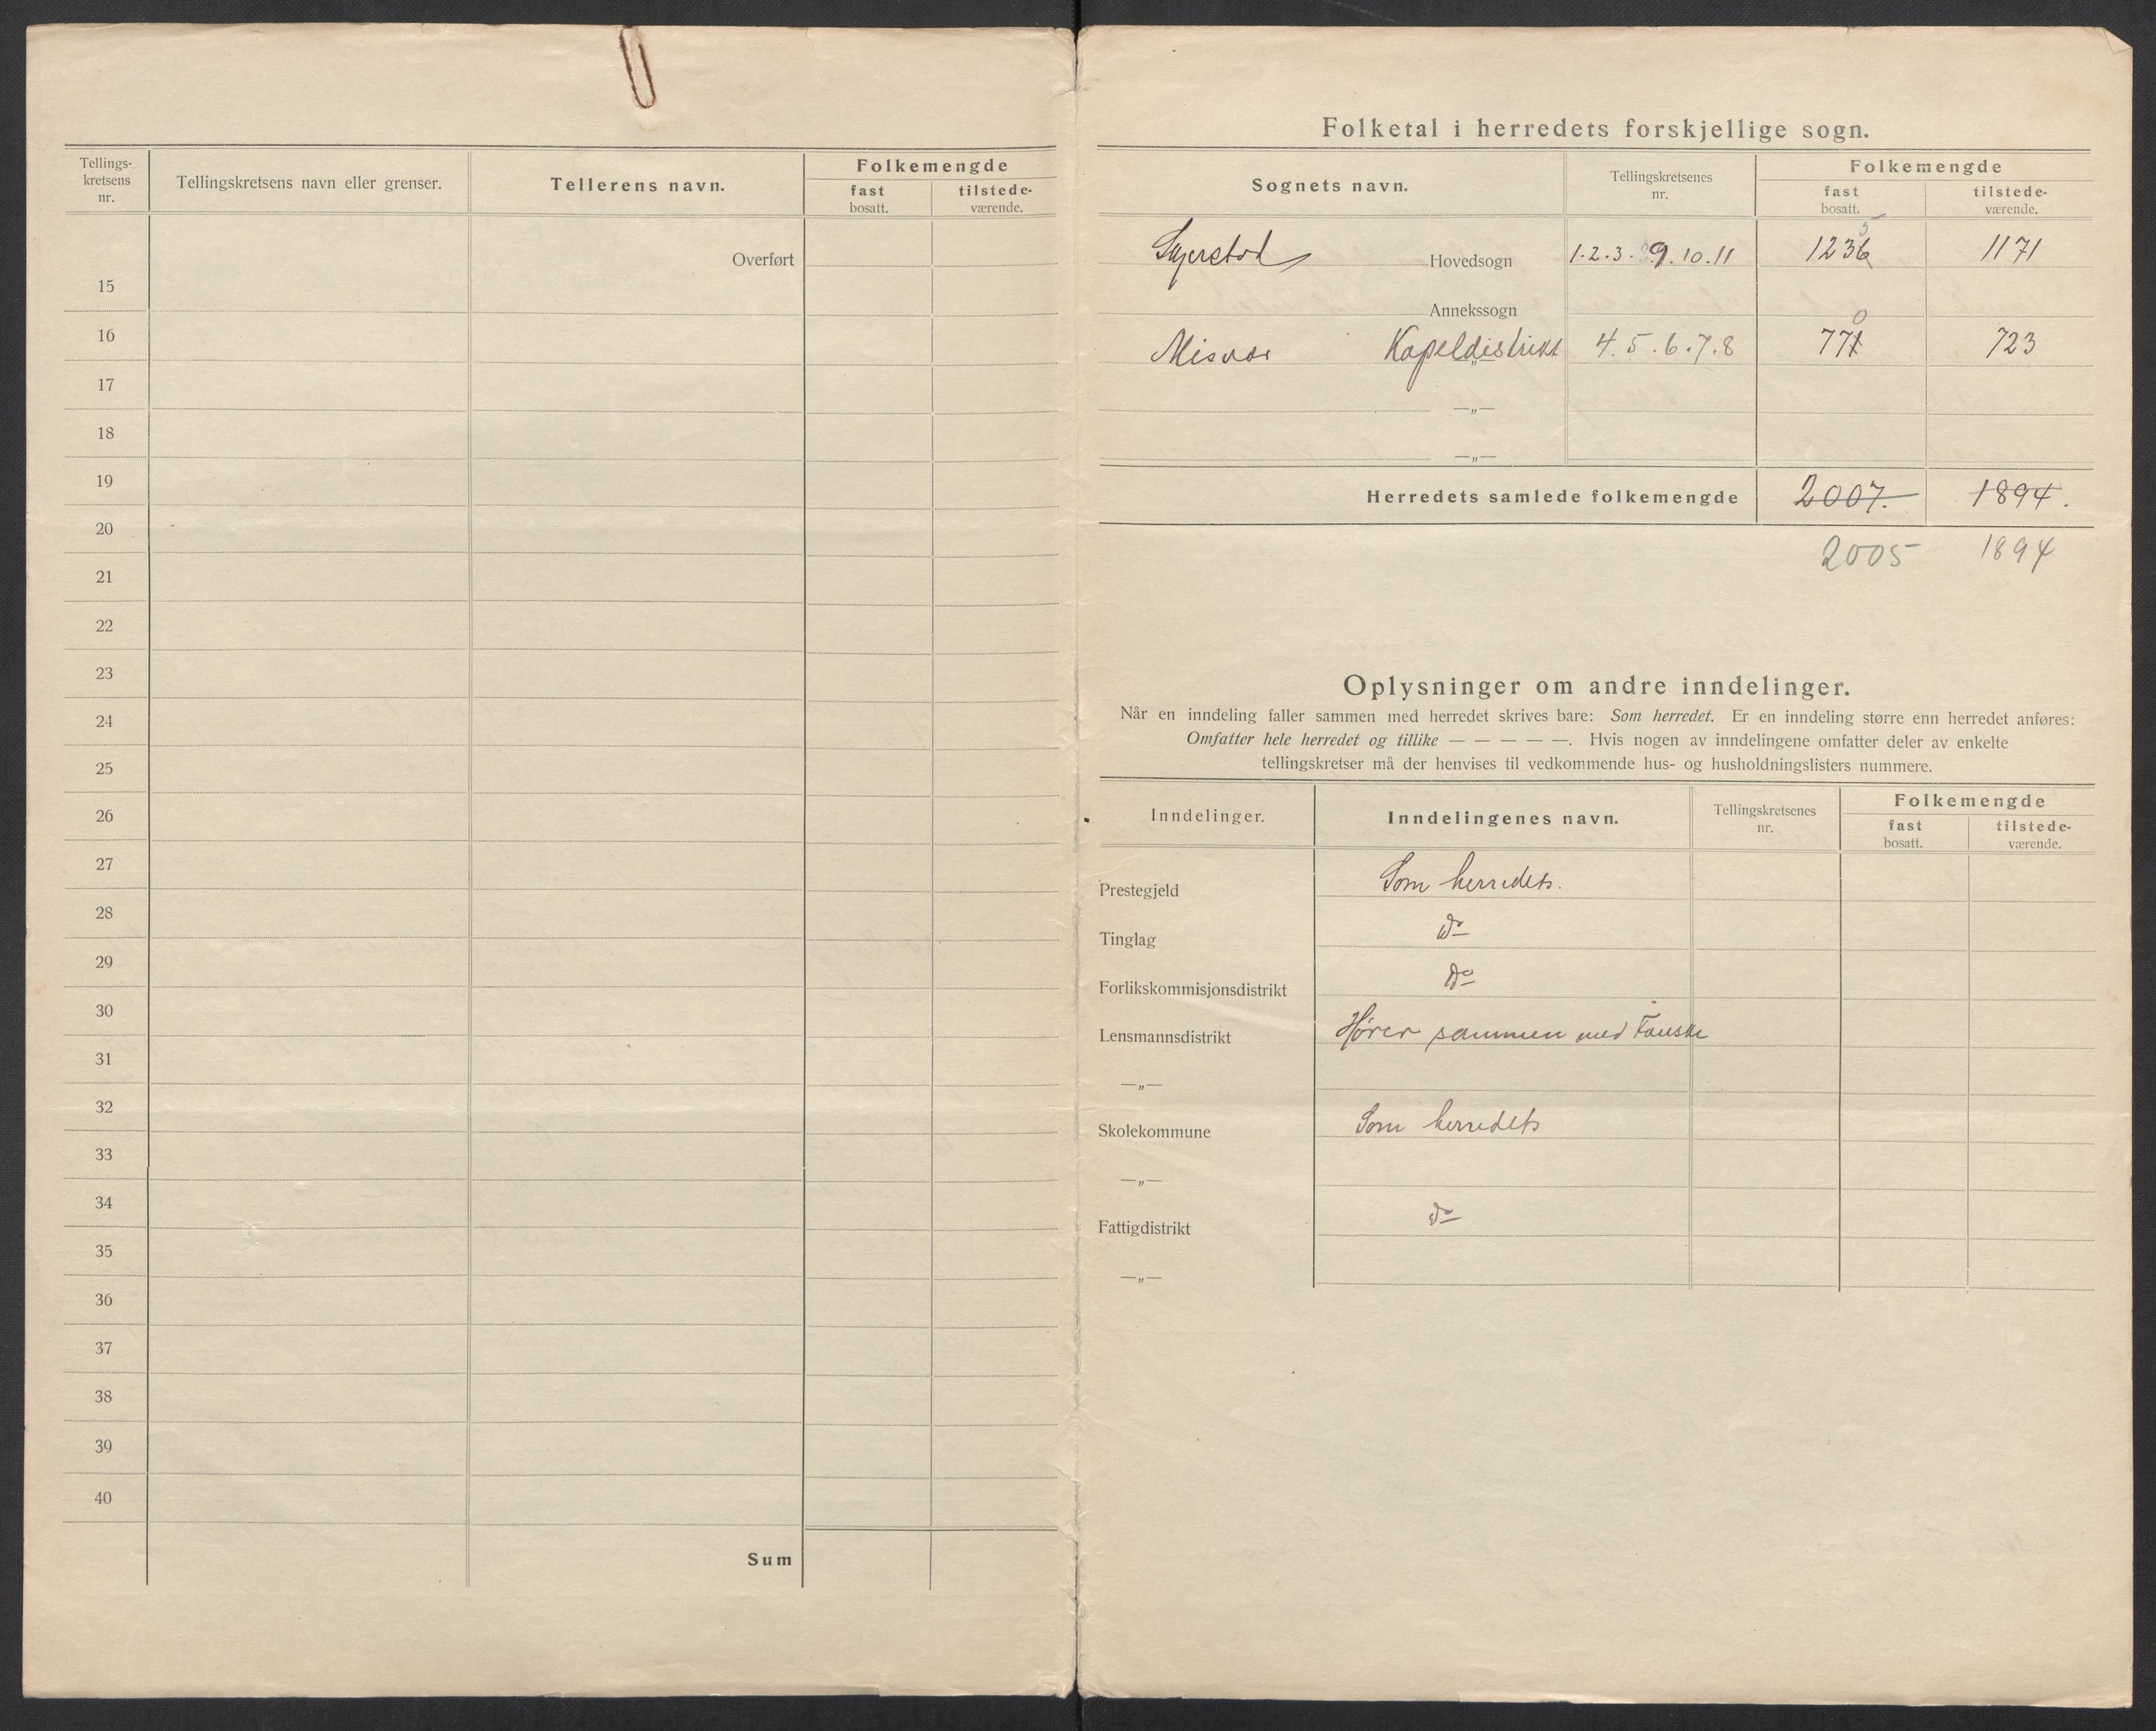 Tellings-
kretsens
nr.
Tellingskretsens navn eller grenser.
Tellerens navn.
Folkemengde
fast
bosatt.
tilstede-
værende.
Overført
15
16
17
18
19
20
21
22
23
24
25
26
27
28
29
30
31
32
33
34
35
36
37
38
39
40
Sum
Folketal i herredets forskjellige sogn.
Sognets navn.
Tellingskretsenes
nr.
Folkemengde
fast
bosatt.
tilstede-
værende.
Skjerstad Hovedsogn 1.2.3.9.10.11 1236 5 1171
Annekssogn
Misvær Kapeldistrikt 4.5.6.7.8 771 0 723
—„—
—„—
Herredets samlede folkemengde 2007. 1894.
2005 1894
Oplysninger om andre inndelinger.
Når en inndeling faller sammen med herredet skrives bare: Som herredet. Er en inndeling større enn herredet anføres:
Omfatter hele herredet og tillike — — — — —. Hvis nogen av inndelingene omfatter deler av enkelte
tellingskretser må der henvises til vedkommende hus- og husholdningslisters nummere.
Inndelinger.
Inndelingenes navn.
Tellingskretsenes
nr.
Folkemengde
fast
bosatt.
tilstede-
værende.
Prestegjeld Som herredets.
Tinglag do
Forlikskommisjonsdistrikt do
Lensmannsdistrikt Hører sammen med Fauske
—„—
Skolekommune Som herredets
—„—
Fattigdistrikt do
—„—